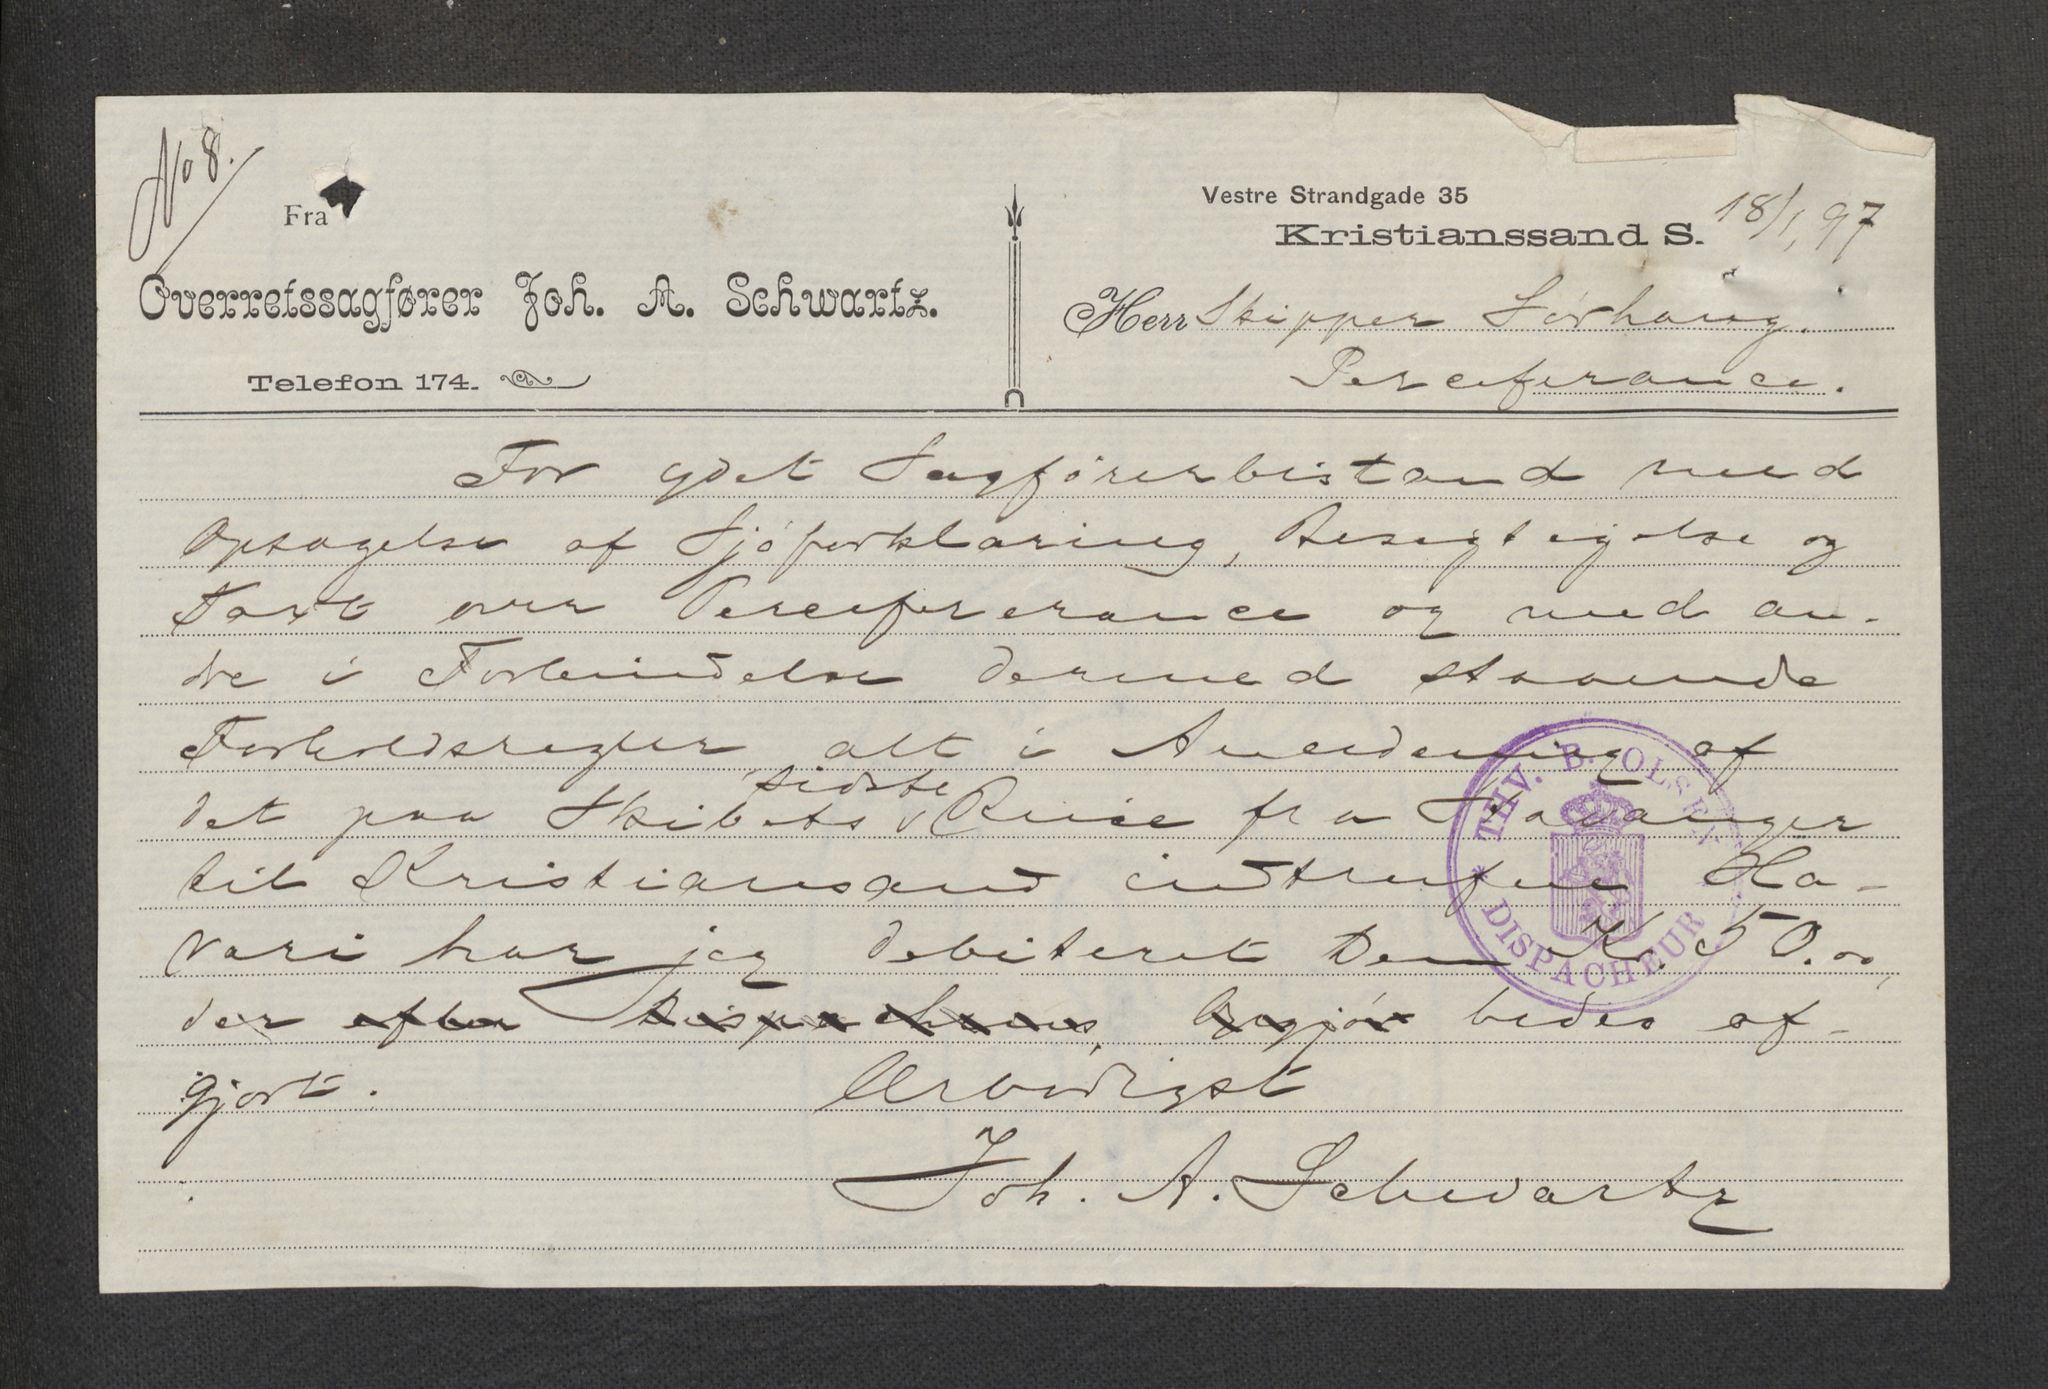 No 8.
Fra
Overretssagfører Joh. A. Schwartz.
Telefon 174.
Vestre Strandgade 35
Kristianssand S. 18/1, 97
Herr Skipper Sørhaug.
Perceiferance.
For ydet Sagførerbistand med
Optagelse af Sjøforklaring, Besigtigelse og
Taxt over Perceiferance og med an-
dre i Forbindelse dermed staaende
Forholdsregler alt i Anledning af
det paa Skibets sidste Reise fra Stavanger
til Kristiansand indtrufne Ha-
vari har jeg debiteret Dem Kr. 50.00,
der efter Dispachens, bedes af-
gjort.
Ærbødigst
Joh. A. Schwartz
THV. B. OLSEN
* DISPACHEUR *